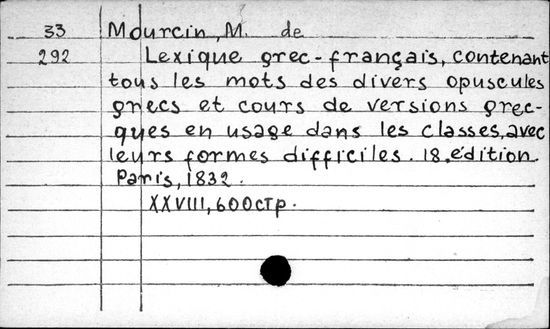 33 Mourcin, M. de
292 Lexique grec-français, contenant
tous les mots des divers opuscules
grecs et cours de versions grec-
ques en usage dans les classes, avec
leurs formes difficiles. 18. edition.
Paris, 1832.
XXVIII, 600стр.